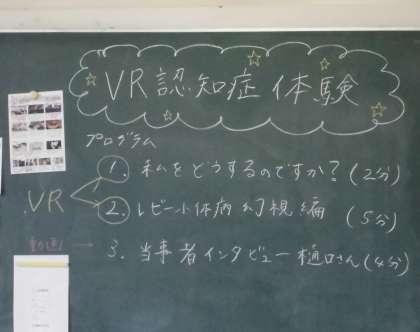 VR認知症体験
プログラム
1. 私をどうするのですか？(2分)
VR
2. レビー小体病 幻視編 (5分)
動画
3. 当事者インタビュー樋口さん(4分)